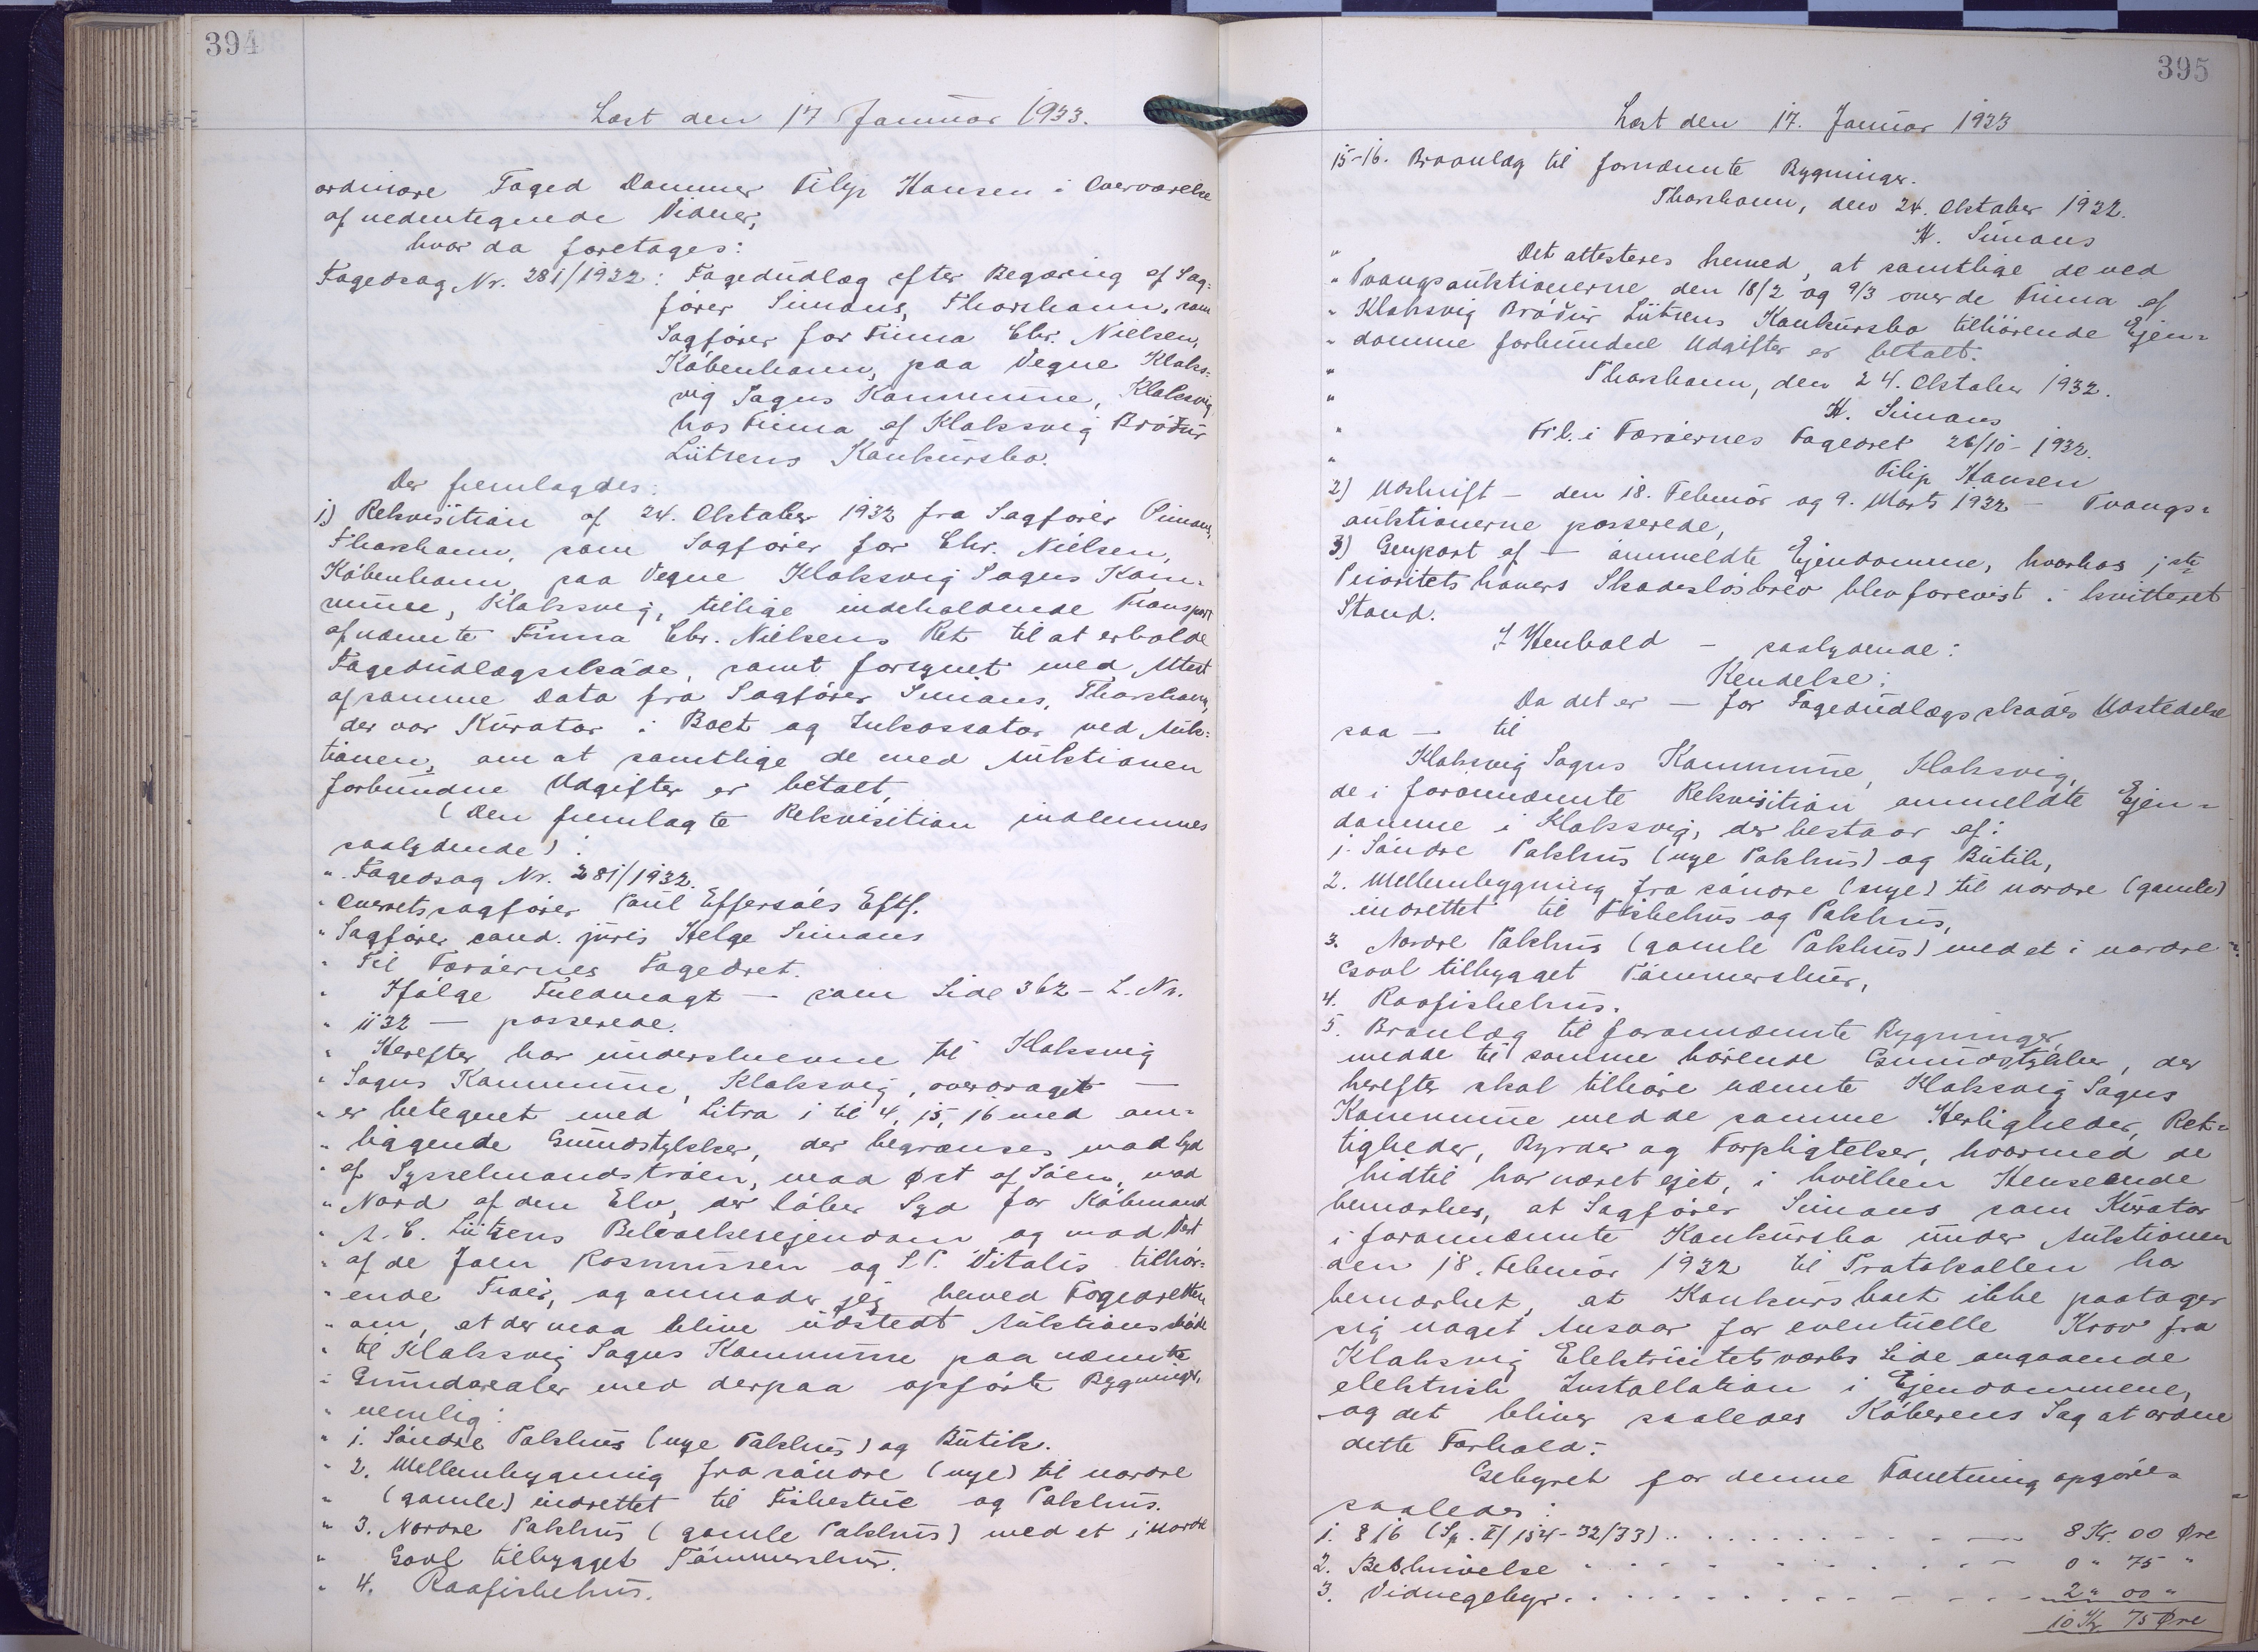 394
Læst den 17 Januar 1933.
ordinære Foged Dommer Filip Hansen i Overværelse
af nedentegnede Vidner,
hvor da foretages:
Fogedsag Nr. 281/1932: Fogedudlæg efter Begæring af Sag=
fører Simons, Thorshavn, som
Sagfører for Firma Chr. Nielsen,
København, paa Vegne Klaks=
vig Sogns Kommune, Klaksvig
hos Firma af Klaksvig Bróður
Lützens Konkursbo.
Der fremlagdes:
1) Rekvisition af 24. Oktober 1932 fra Sagfører Simons,
Thorshavn, som Sagfører for Chr. Nielsen,
København, paa Vegne Klaksvig Sogns Kom=
mune, Klaksvig, tillige indeholdende Transport
af nævnte Firma Chr. Nielsens Ret til at erholde
Fogedudlægsskøde, samt forsynet med Attest
af samme Dato fra Sagfører Simons, Thorshavn,
der var Kurator i Boet og Inkassator ved Auk=
tionen, om at samtlige de med Auktionen
forbundne Udgifter er betalt,
(Den fremlagte Rekvisition indlemmes
saalydende):
" Fogedsag Nr. 281/1932.
" Overretssagfører Poul Effersøes Eftf.
" Sagfører cand. juris Helge Simons
" Til Færøernes Fogedret.
" Ifølge Fuldmagt — som Side 362 - L. Nr.
" 1132 — passerede.
" Herefter har underskrevne til Klaksvig
" Sogns Kommune, Klaksvig, overdraget —
" er betegnet med Litra 1 til 4, 15, 16 med om=
" liggende Grundstykker, der begrænses mod Syd
" af Sysselmandstrøen, mod Øst af Søen, mod
" Nord af den Elv, der løber Syd for Købmand
" A. C. Lützens Beboelsesejendom og mod Vest
" af de Joen Rasmussen og S. P. Vitalis tilhør=
" ende Trøer, og anmoder jeg herved Fogedretten
" om, at der maa blive udstedt Auktionsskøde
" til Klaksvig Sogns Kommune paa nævnte
" Grundarealer med derpaa opførte Bygninger,
" nemlig:
" 1. Søndre Pakhus (nye Pakhus) og Butik.
" 2. Mellembygning fra søndre (nye) til nordre
" (gamle) indrettet til Fiskestue og Pakhus.
" 3. Nordre Pakhus (gamle Pakhus) med et i nordre
" Gavl tilbygget Tømmerskur.
" 4. Raafiskehus.
395
Læst den 17. Januar 1933
15-16. Braanlæg til fornævnte Bygninger.
Thorshavn, den 24. Oktober 1932.
H. Simons
" Det attesteres herved, at samtlige de ved
" Tvangsauktionerne den 18/2 og 9/3 over de Firma af
" Klaksvig Bróður Lützens Konkursbo tilhørende Ejen=
" domme forbundne Udgifter er betalt.
" Thorshavn, den 24. Oktober 1932.
" H. Simons
" Frl. i Færøernes Fogedret 26/10 - 1932.
" Filip Hansen
2) Udskrift — den 18. Februar og 9. Marts 1932 — Tvangs=
auktionerne passerede,
3) Genpart af — ommeldte Ejendomme, hvorhos 1ste
Prioritetshavers Skadesløsbrev blev forevist i kvitteret
Stand.
I Henhold — saalydende:
Kendelse:
Da det er — for Fogedudlægsskødes Udstedelse
saa — til
Klaksvig Sogns Kommune, Klaksvig,
de i forannævnte Rekvisition ommeldte Ejen=
domme i Klaksvig, der bestaar af:
1. Søndre Pakhus (nye Pakhus) og Butik,
2. Mellembygning fra søndre (nye) til nordre (gamle)
indrettet til Fiskehus og Pakhus,
3. Nordre Pakhus (gamle Pakhus) med et i nordre
Gavl tilbygget Tømmerskur,
4. Raafiskehus.
5. Branlæg til forannævnte Bygninger,
med de til samme hørende Grundstykker, der
herefter skal tilhøre nævnte Klaksvig Sogns
Kommune med de samme Herligheder, Ret=
tigheder, Byrder og Forpligtelser, hvormed de
hidtil har været ejet, i hvilken Henseende
bemærkes, at Sagfører Simons som Kurator
i forannævnte Konkursbo under Auktionen
den 18. Februar 1932 til Protokollen har
bemærket, at Konkursboet ikke paatager
sig noget Ansvar for eventuelle Krav fra
Klaksvig Elektricitetsværks Side angaaende
elektrisk Installation i Ejendommene,
og det bliver saaledes Køberens Sag at ordne
dette Forhold.
Gebyret for denne Forretning opgøres
saaledes:
1. § 16 (Sp. II/ 154-32/33) . . . . . 8 Kr. 00 Øre
2. Beskrivelse . . . . . 0 " 75 "
3. Vidnegebyr . . . . . 2 " 00 "
10 Kr. 75 Øre